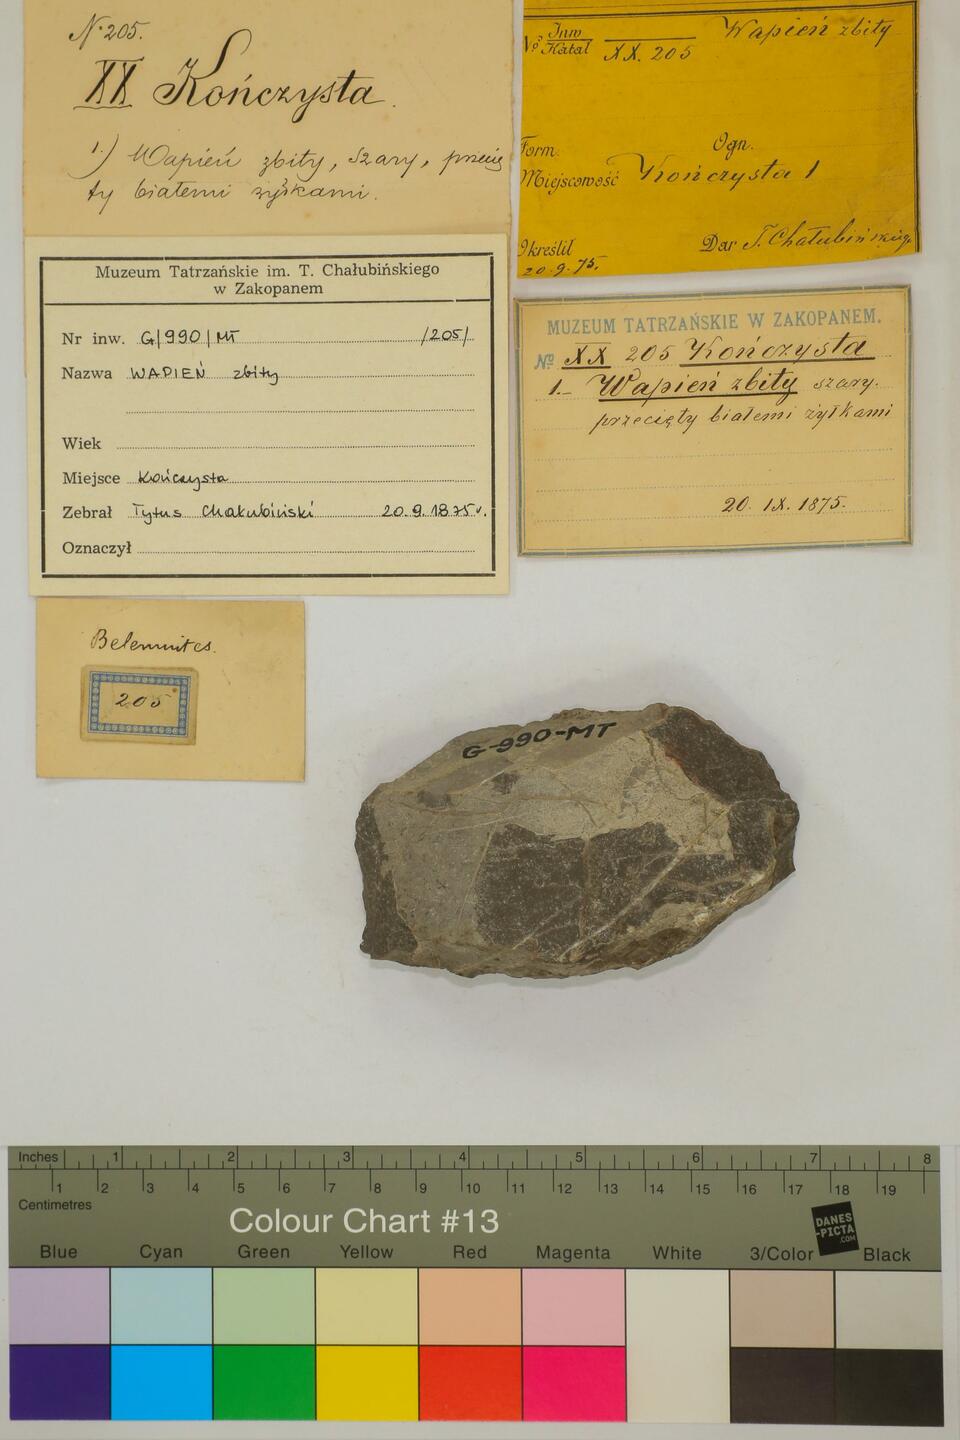 N. 205.
XX Kończysta.
1.) Wapień zbity, szary, przecię
ty białemi żyłkami.
No Inw
Katal
XX. 205
Wapień zbity
Form.
Ogn.
Miejscowość Kończysta 1
Określił
Dar T. Chałubińskiego
20.9.75.
Muzeum Tatrzańskie im. T. Chałubińskiego
w Zakopanem
Nr inw. G/990/MT /205/
Nazwa WAPIEŃ zbity
Wiek
Miejsce Kończysta
Zebrał Tytus Chałubiński 20.9.1875r.
Oznaczył
MUZEUM TATRZAŃSKIE W ZAKOPANEM.
No XX 205 Kończysta
1.- Wapień zbity szary.
przecięty białemi żyłkami
20. IX. 1875.
Belemnites.
205
G-990-MT
Inches 1 2 3 4 5 6 7 8
1 2 3 4 5 6 7 8 9 10 11 12 13 14 15 16 17 18 19
Centimetres
Colour Chart #13
DANES
-PICTA
.COM
Blue Cyan Green Yellow Red Magenta White 3/Color Black